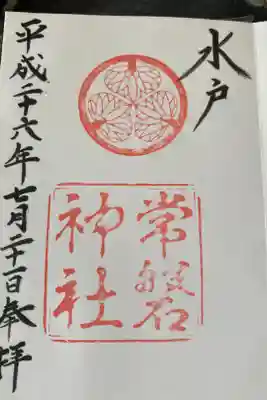 水戸
常磐
神社
平成二十六年七月二十一日奉拝